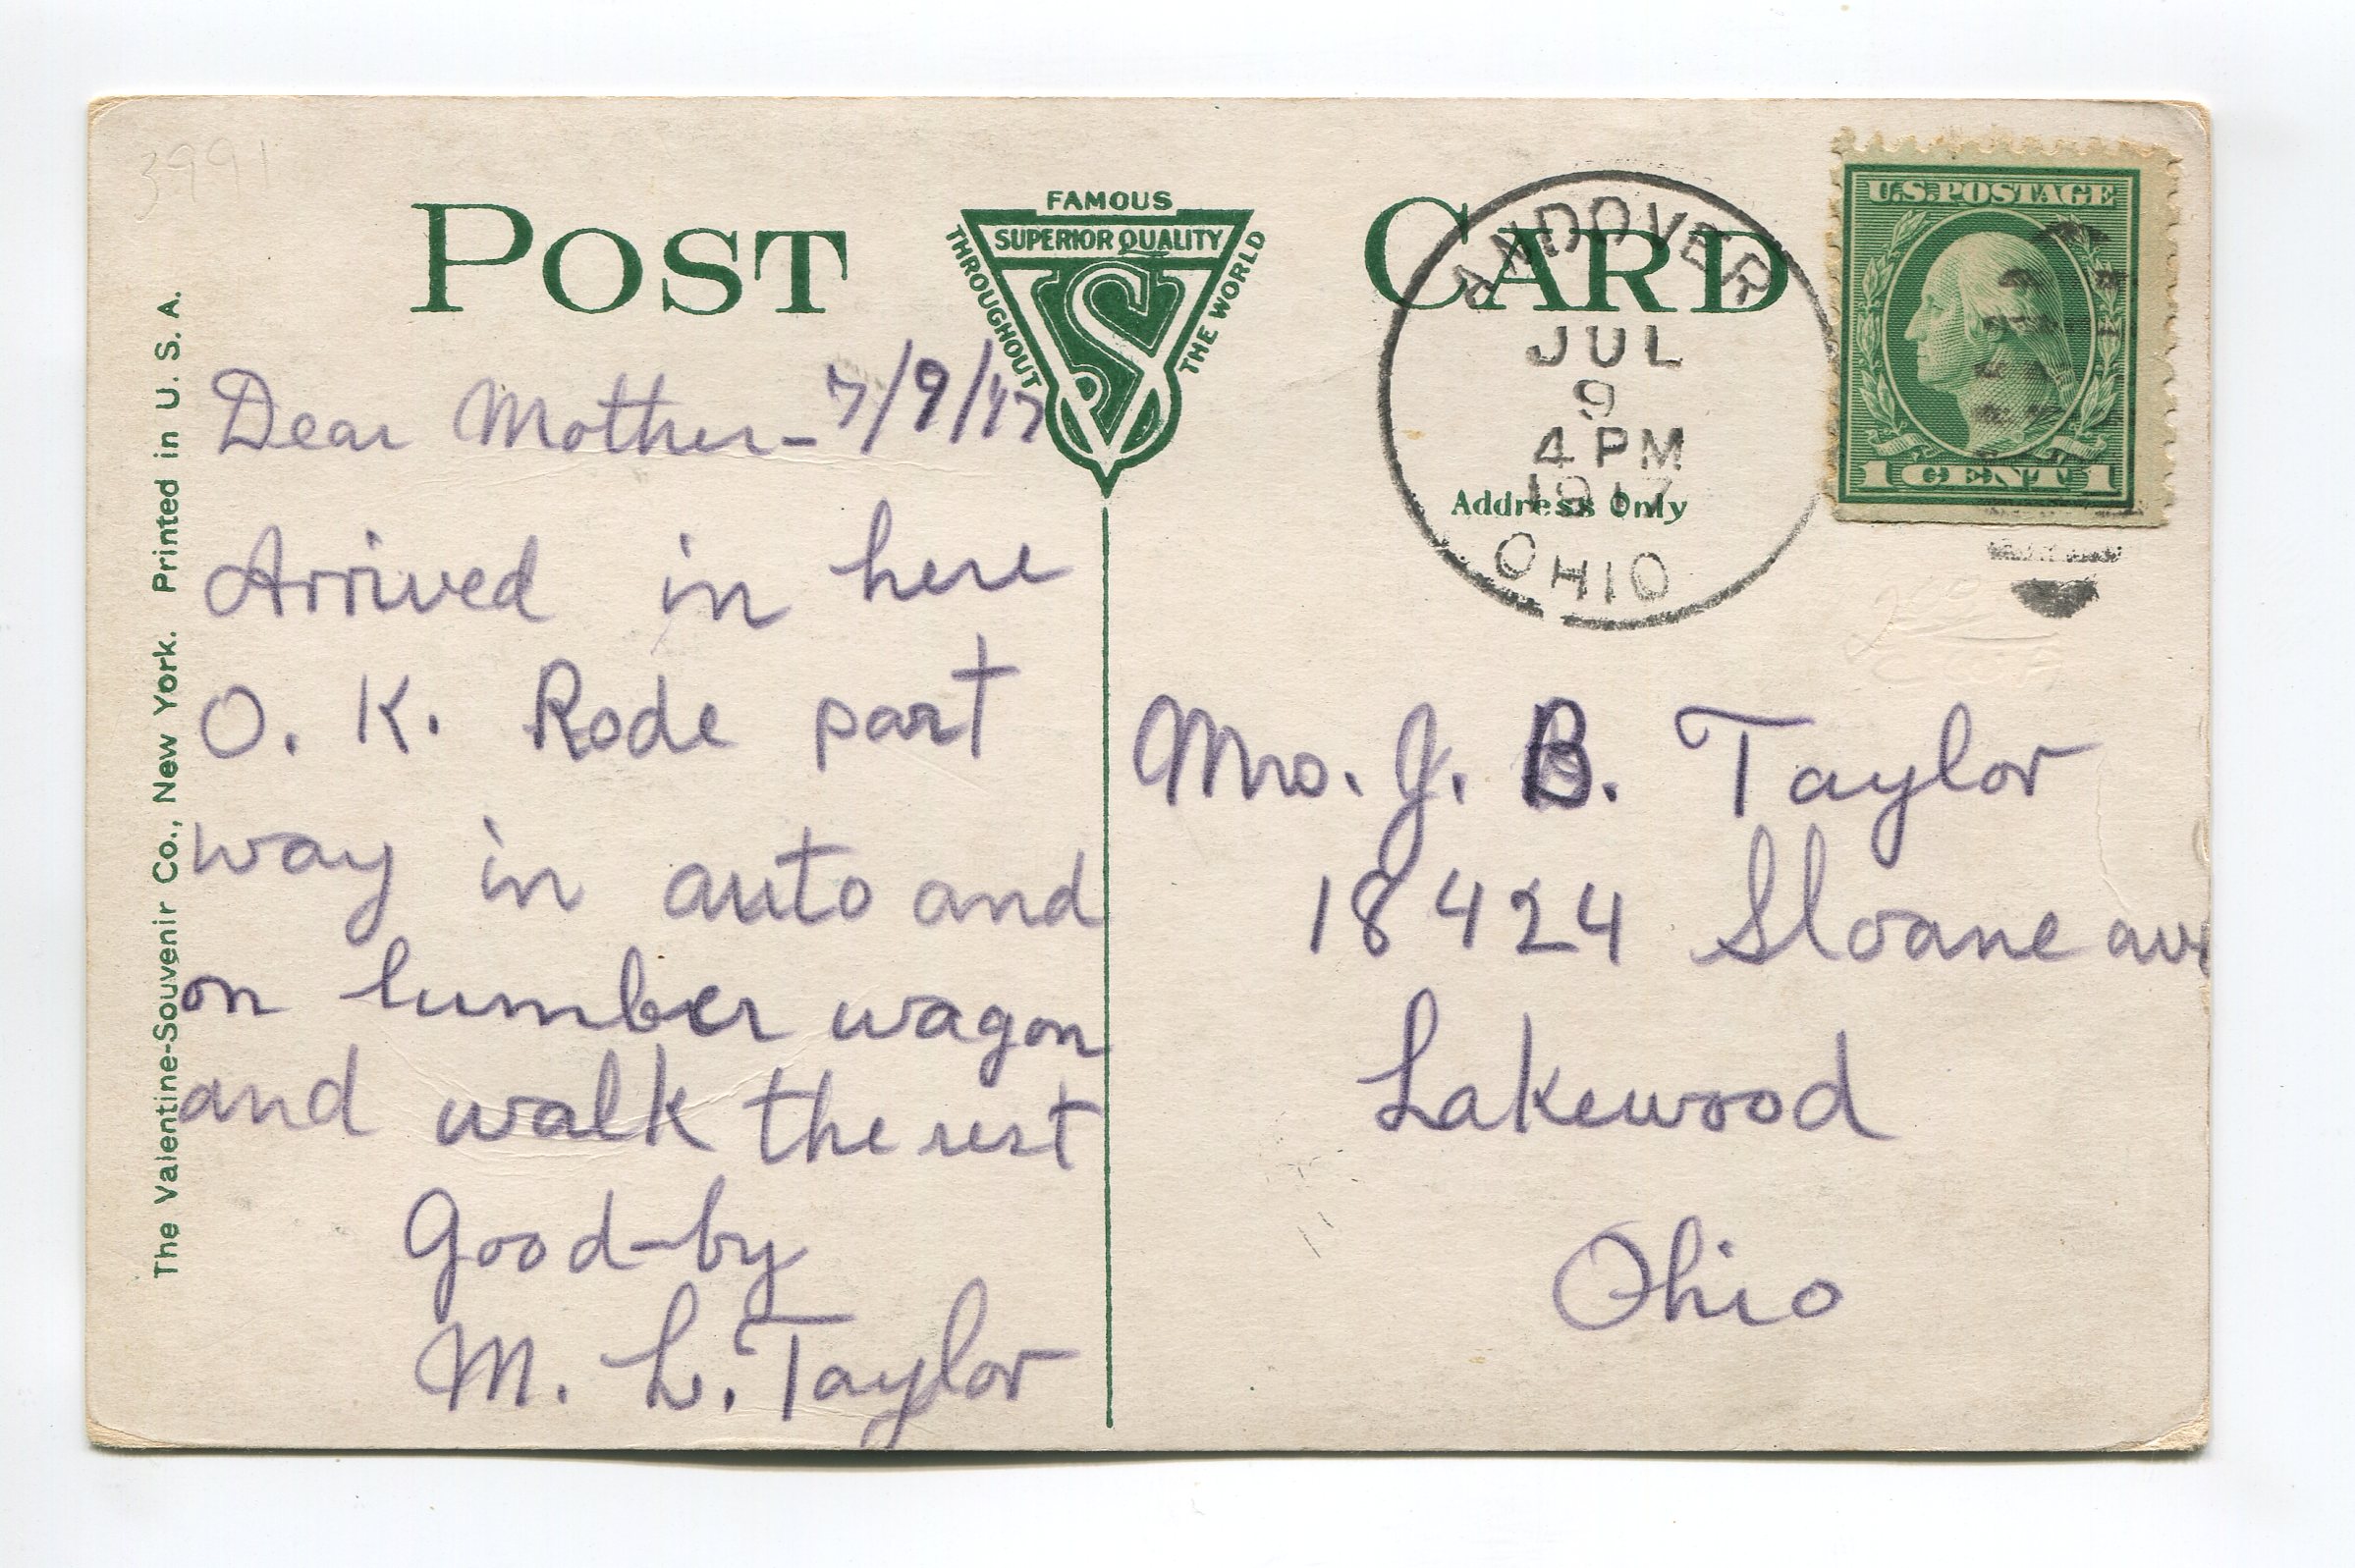 3991
POST CARD
FAMOUS
SUPERIOR QUALITY
THROUGHOUT
THE WORLD
VS
The Valentine-Souvenir Co., New York. Printed in U. S. A.
Dear Mother - 7/9/17
Arrived in here
O. K. Rode part
way in auto and
on lumber wagon
and walk the rest
Good-by
M. L. Taylor
ANDOVER
JUL
9
4 PM
1917
OHIO
Address Only
U.S. POSTAGE
1 CENT 1
Mrs. J. B. Taylor
18424 Sloane ave
Lakewood
Ohio